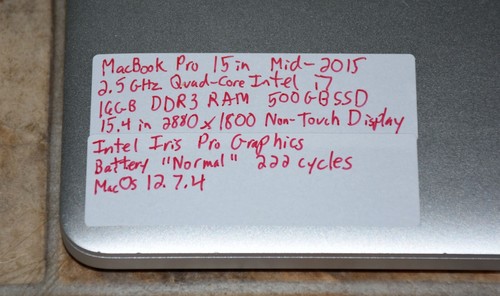 MacBook Pro 15in Mid-2015
2.5 GHz Quad-Core Intel i7
16GB DDR3 RAM 500GB SSD
15.4 in 2880 x 1800 Non-Touch Display
Intel Iris Pro Graphics
Battery "Normal" 222 cycles
MacOs 12.7.4